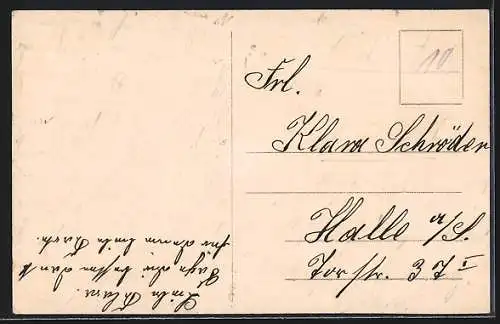 10
Frl.
Klara Schröder
Halle a/S.
Torstr. 37 I
Liebe Klara.
Sage dir besten Dank
für deine liebe Karte.